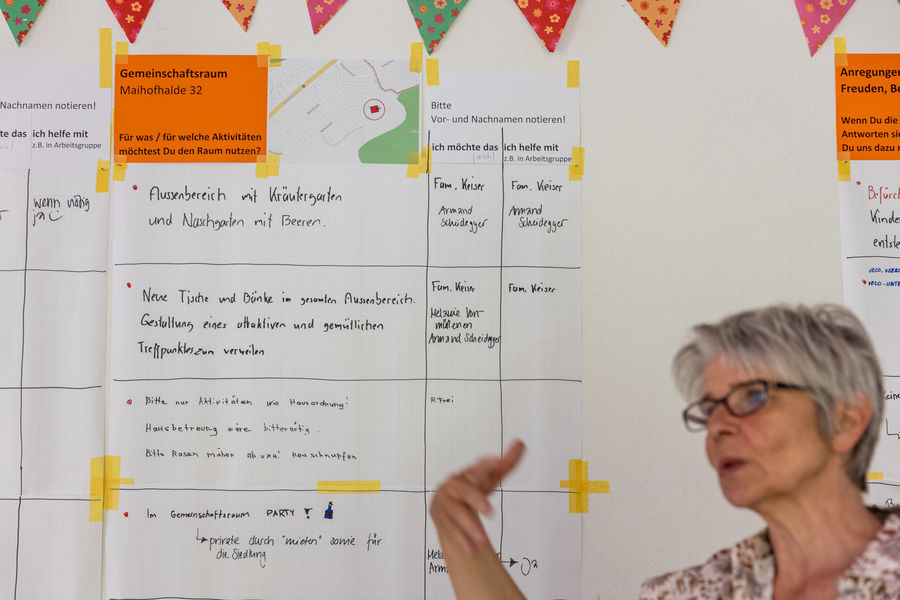 Nachnamen notieren!
ich helfe mit
z.B. in Arbeitsgruppe
wenn nötig
ja
Gemeinschaftsraum
Maihofhalde 32
Für was / für welche Aktivitäten
möchtest Du den Raum nutzen?
Bitte
Vor- und Nachnamen notieren!
ich möchte das
ich helfe mit
z.B. in Arbeitsgruppe
Aussenbereich mit Kräutergarten
und Naschgarten mit Beeren.
Fam. Keiser
Armand
Scheidegger
Fam. Keiser
Armand
Scheidegger
Neue Tische und Bänke im gesamten Aussenbereich.
Gestaltung eines attraktiven und gemütlichen
Treffpunktes zum verweilen
Fam. Keiser
Melanie Von-
Armand Scheidegger
Fam. Keiser
Bitte nur Aktivitäten wo Hausordnung!
Hausbetreuung wäre bitternötig.
Bitte Rasen mähen
R. Frei
Im Gemeinschaftsraum PARTY!
private durch "mieten" sowie für
die Siedlung
Ja
Anregungen
Freuden, Be
Wenn Du die
Antworten
Du uns dazu
Befürch
Kinde
entste